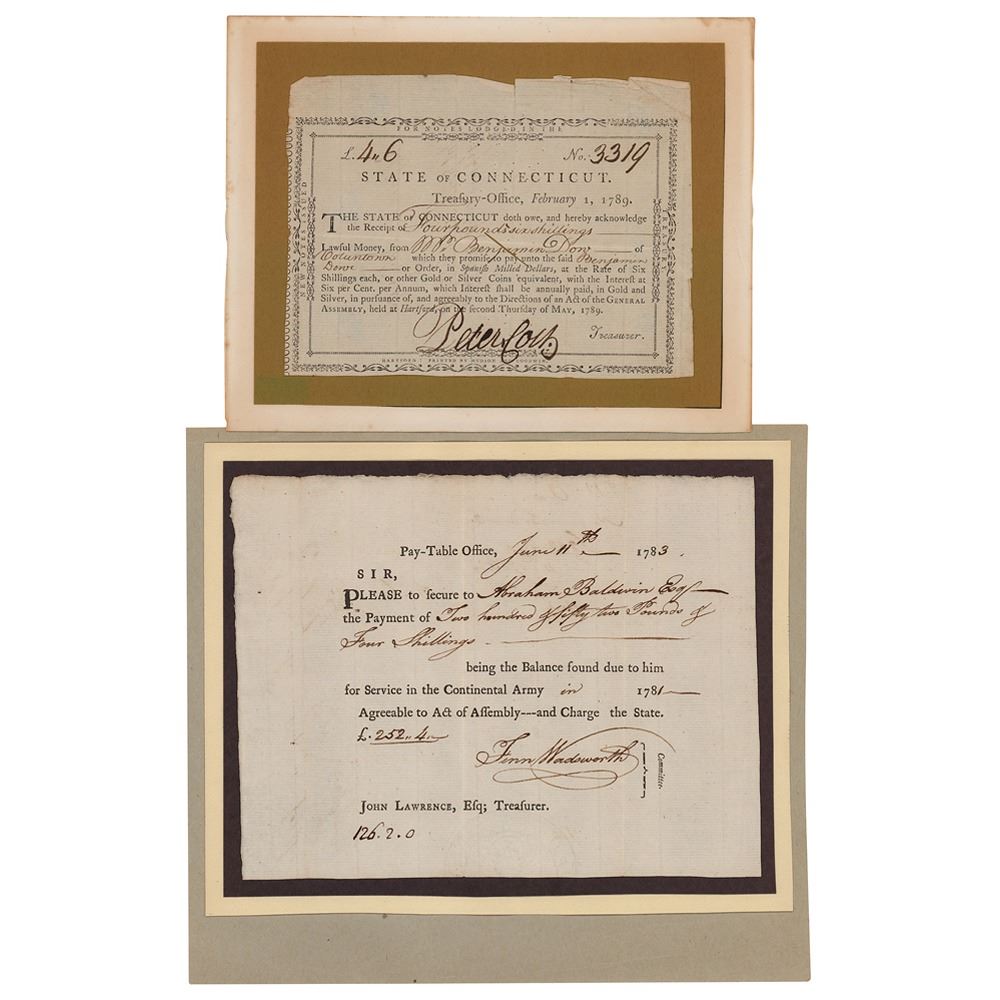 FOR NOTES LODGED IN THE
NEW NOTES ISSUED
TREASURY
£. 4 " 6 No. 3319
STATE OF CONNECTICUT.
Treaſury-Office, February 1, 1789.
THE STATE of CONNECTICUT doth owe, and hereby acknowledge
the Receipt of Four pounds six shillings
Lawful Money, from Mr. Benjamin Dow of
Voluntown which they promiſe to pay unto the ſaid Benjamin
Dow or Order, in Spaniſh Milled Dollars, at the Rate of Six
Shillings each, or other Gold or Silver Coins equivalent, with the Intereſt at
Six per Cent. per Annum, which Intereſt ſhall be annually paid, in Gold and
Silver, in purſuance of, and agreeably to the Directions of an Act of the GENERAL
ASSEMBLY, held at Hartford, on the ſecond Thurſday of MAY, 1789.
Peter Colt Treaſurer.
HARTFORD: PRINTED BY HUDSON GOODWIN
Pay-Table Office, June 11th 1783.
SIR,
PLEASE to ſecure to Abraham Baldwin Esqr
the Payment of Two hundred & fifty two Pounds &
Four Shillings
being the Balance found due to him
for Service in the Continental Army in 1781
Agreeable to Act of Aſſembly---and Charge the State.
£. 252 " 4
Fenn Wadsworth
Committee.
JOHN LAWRENCE, Eſq; Treaſurer.
126.2.0